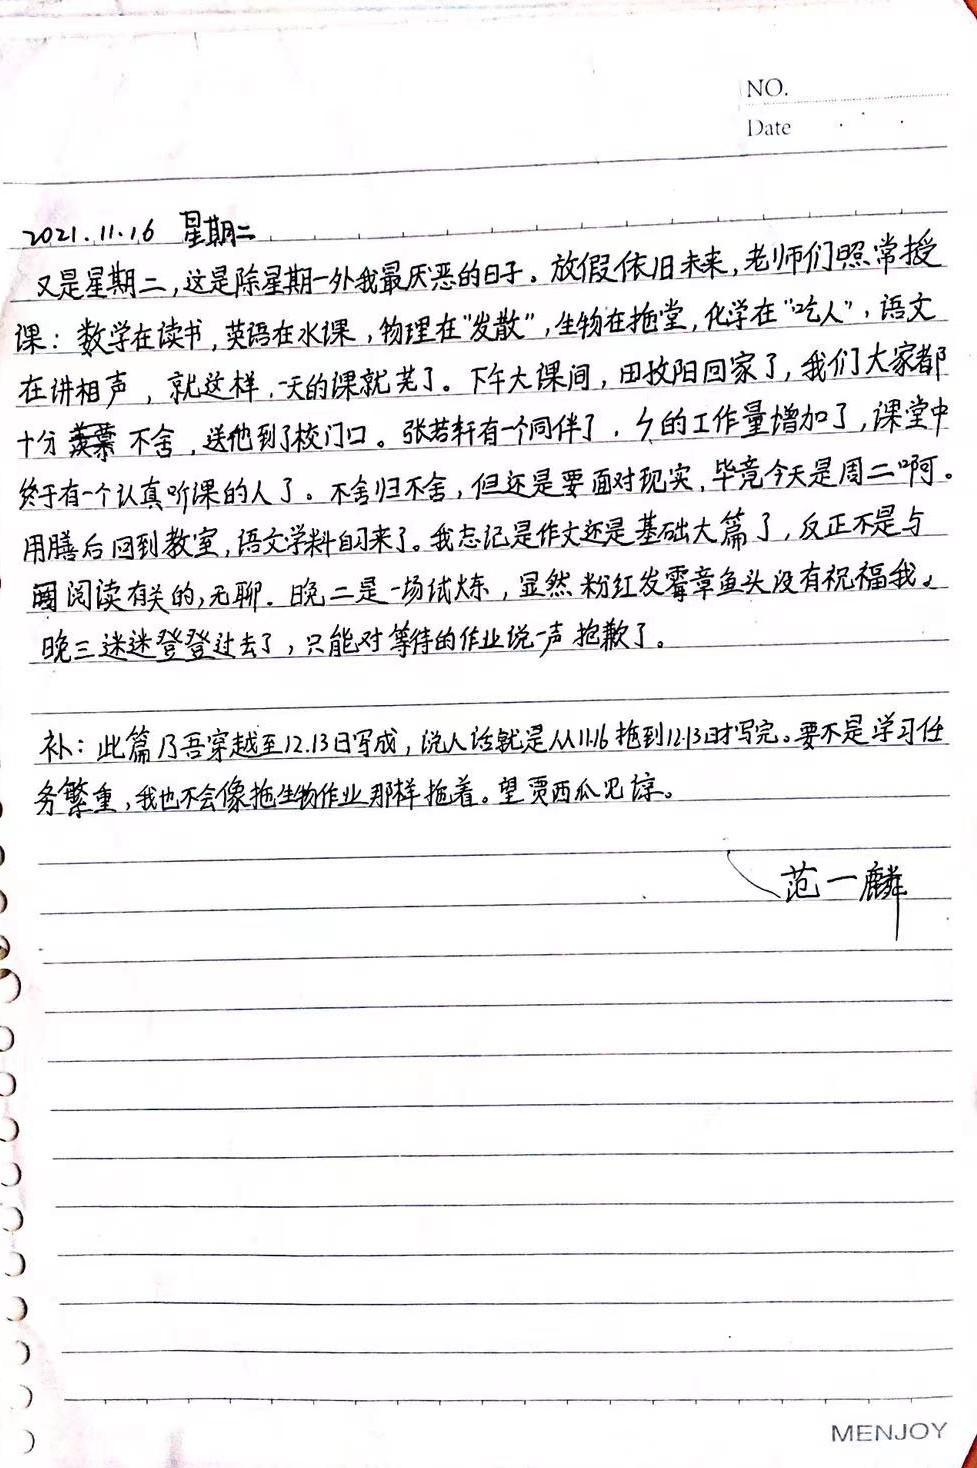 NO.
Date
2021.11.16 星期二
又是星期二,这是除星期一外我最厌恶的日子。放假依旧未来,老师们照常授
课：数学在读书,英语在水课,物理在"发散",生物在拖堂,化学在"吃人",语文
在讲相声,就这样,一天的课就芜了。下午大课间,田牧阳回家了,我们大家都
十分 不舍,送他到了校门口。张若轩有一个同伴了,的工作量增加了,课堂中
终于有一个认真听课的人了。不舍归不舍,但还是要面对现实,毕竟今天是周二啊。
用膳后回到教室,语文学科自习来了。我忘记是作文还是基础大篇了,反正不是与
阅读有关的,无聊。晚二是一场试炼,显然粉红发霉章鱼头没有祝福我。
晚三迷迷登登过去了,只能对等待的作业说一声抱歉了。
补：此篇乃吾穿越至12.13日写成,说人话就是从11.16拖到12.13日才写完。要不是学习任
务繁重,我也不会像拖生物作业那样拖着。望贾西瓜见谅。
范一麟
MENJOY